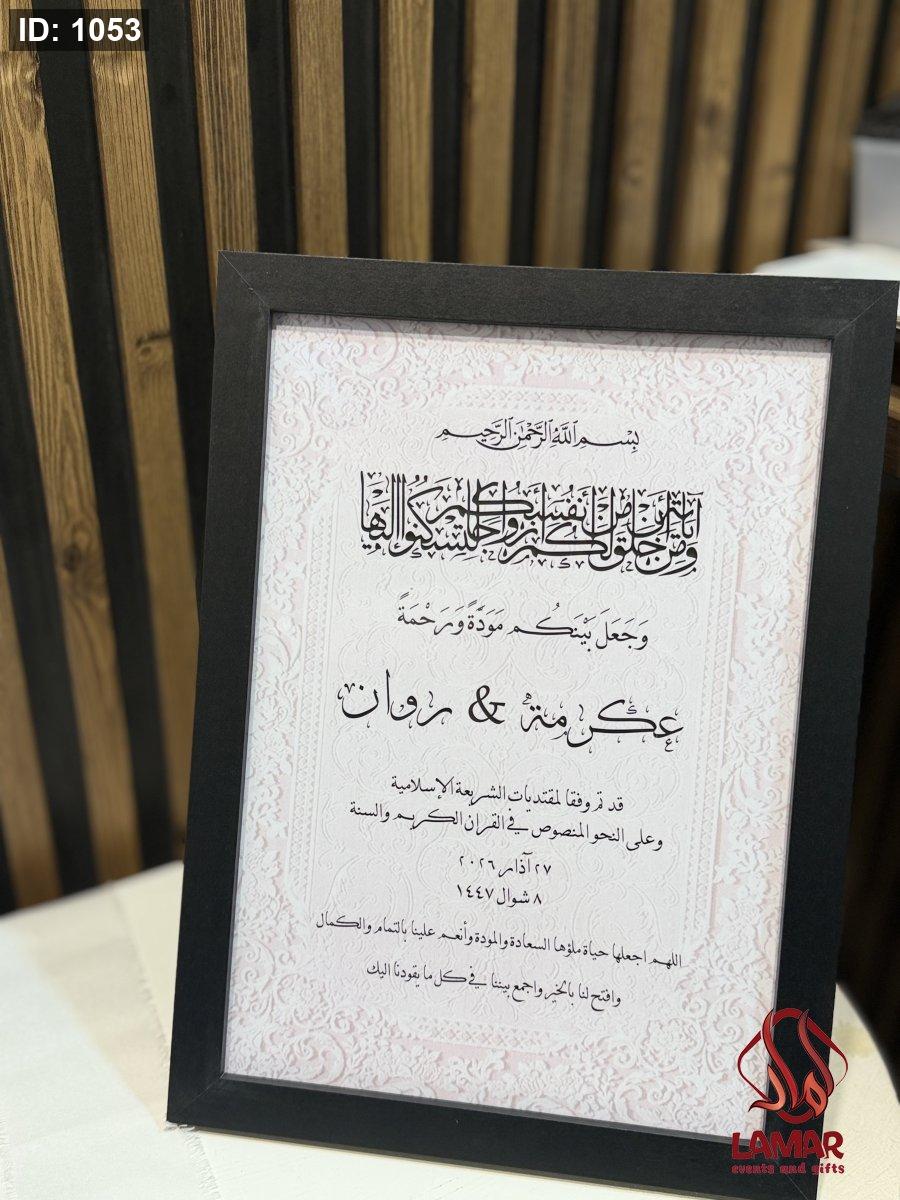 ID: 1053
بِسْمِ اللَّهِ الرَّحْمَٰنِ الرَّحِيمِ
وَمِنْ آيَاتِهِ أَنْ خَلَقَ لَكُم مِّنْ أَنفُسِكُمْ أَزْوَاجًا لِّتَسْكُنُوا إِلَيْهَا
وَجَعَلَ بَيْنَكُم مَوَدَّةً وَرَحْمَةً
عكرمة & روان
قد تم وفقا لمقتديات الشريعة الإسلامية
وعلى النحو المنصوص في القران الكريم والسنة
٢٧ آذار ٢٠٢٦
٨ شوال ١٤٤٧
اللهم اجعلها حياة ملؤها السعادة والمودة وأنعم علينا بالتمام والكمال
وافتح لنا بالخير واجمع بيننا في كل ما يقودنا اليك
لمار
LAMAR
events and gifts